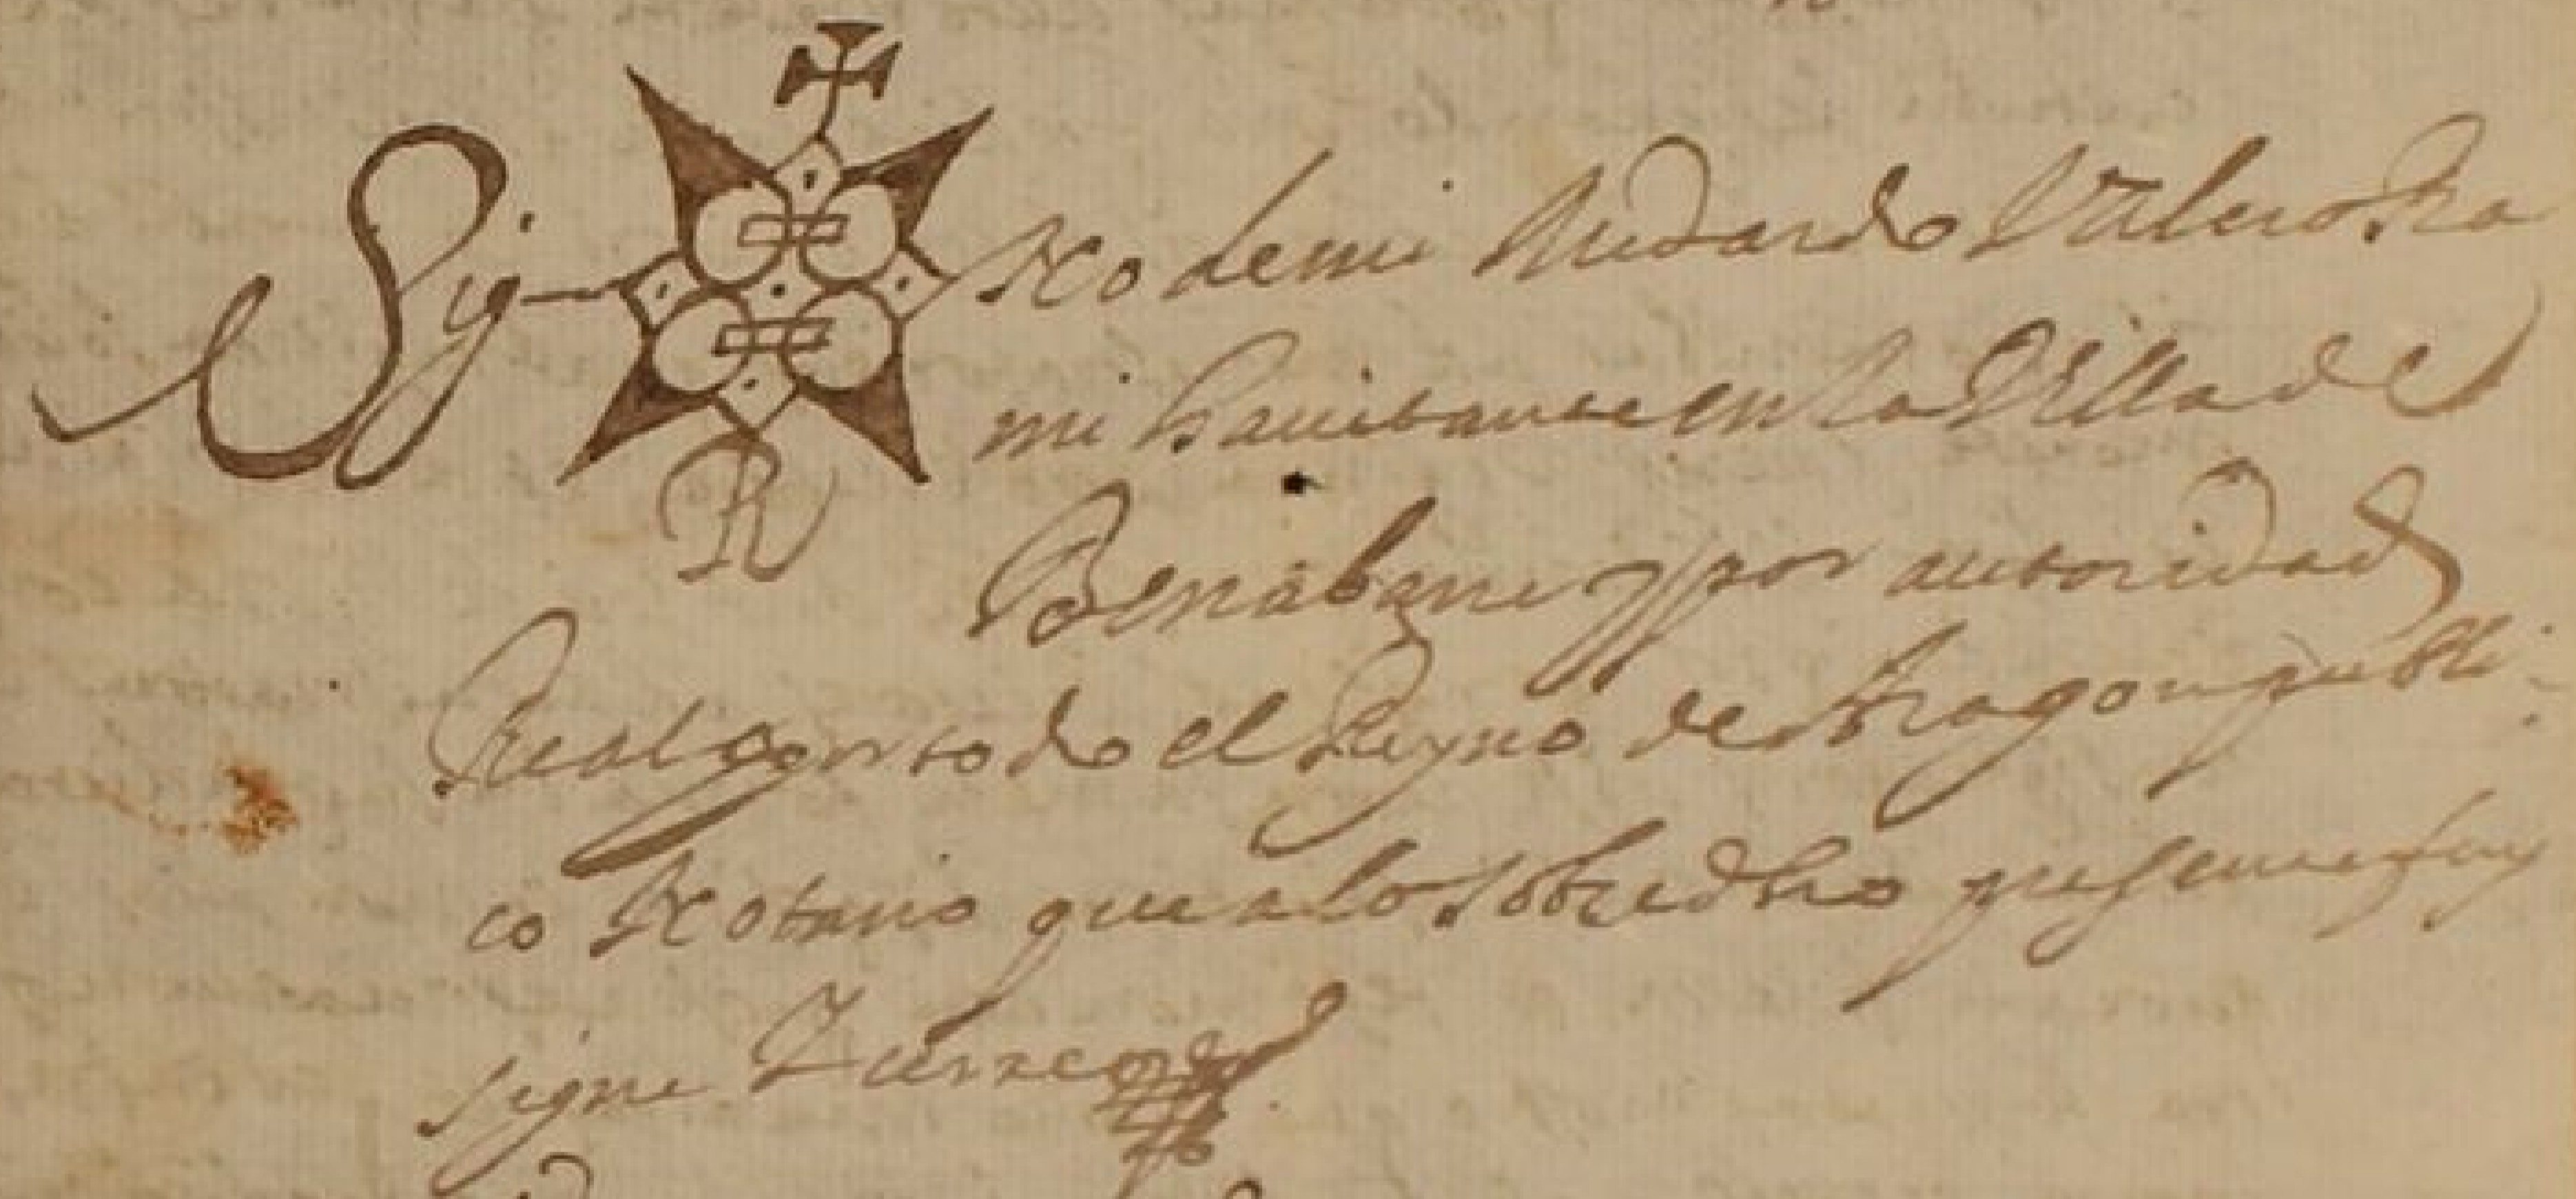 Sig-no de mi Medardo Valero Ra
mi havitante en la Villa de
Benabarre y por autoridad
Real por todo el Reyno de Aragon publi-
co Notario que a lo sobredho presente fuy
signe et cerre
R